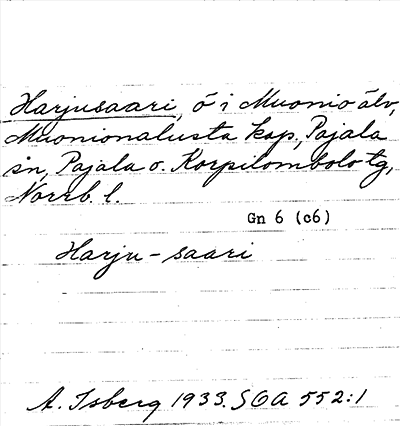 Harjusaari, ö i Muonio älv,
Muonionalusta kap., Pajala
sn, Pajala o. Korpilombolo tg,
Norrb. l.
Gn 6 (c6)
Harju - saari
A. Isberg 1933. SOA 552:1